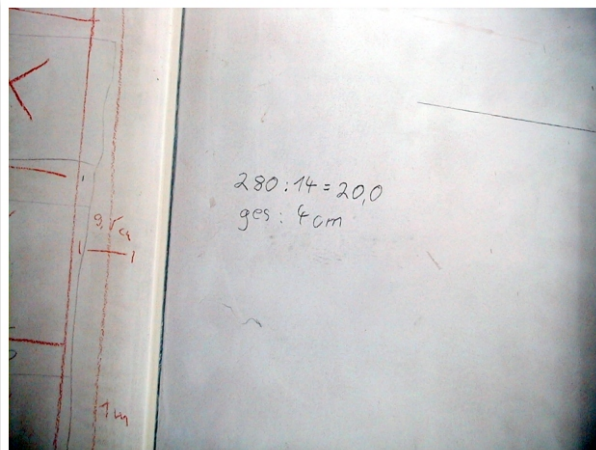 280:14=20,0
ges: 4cm
1m